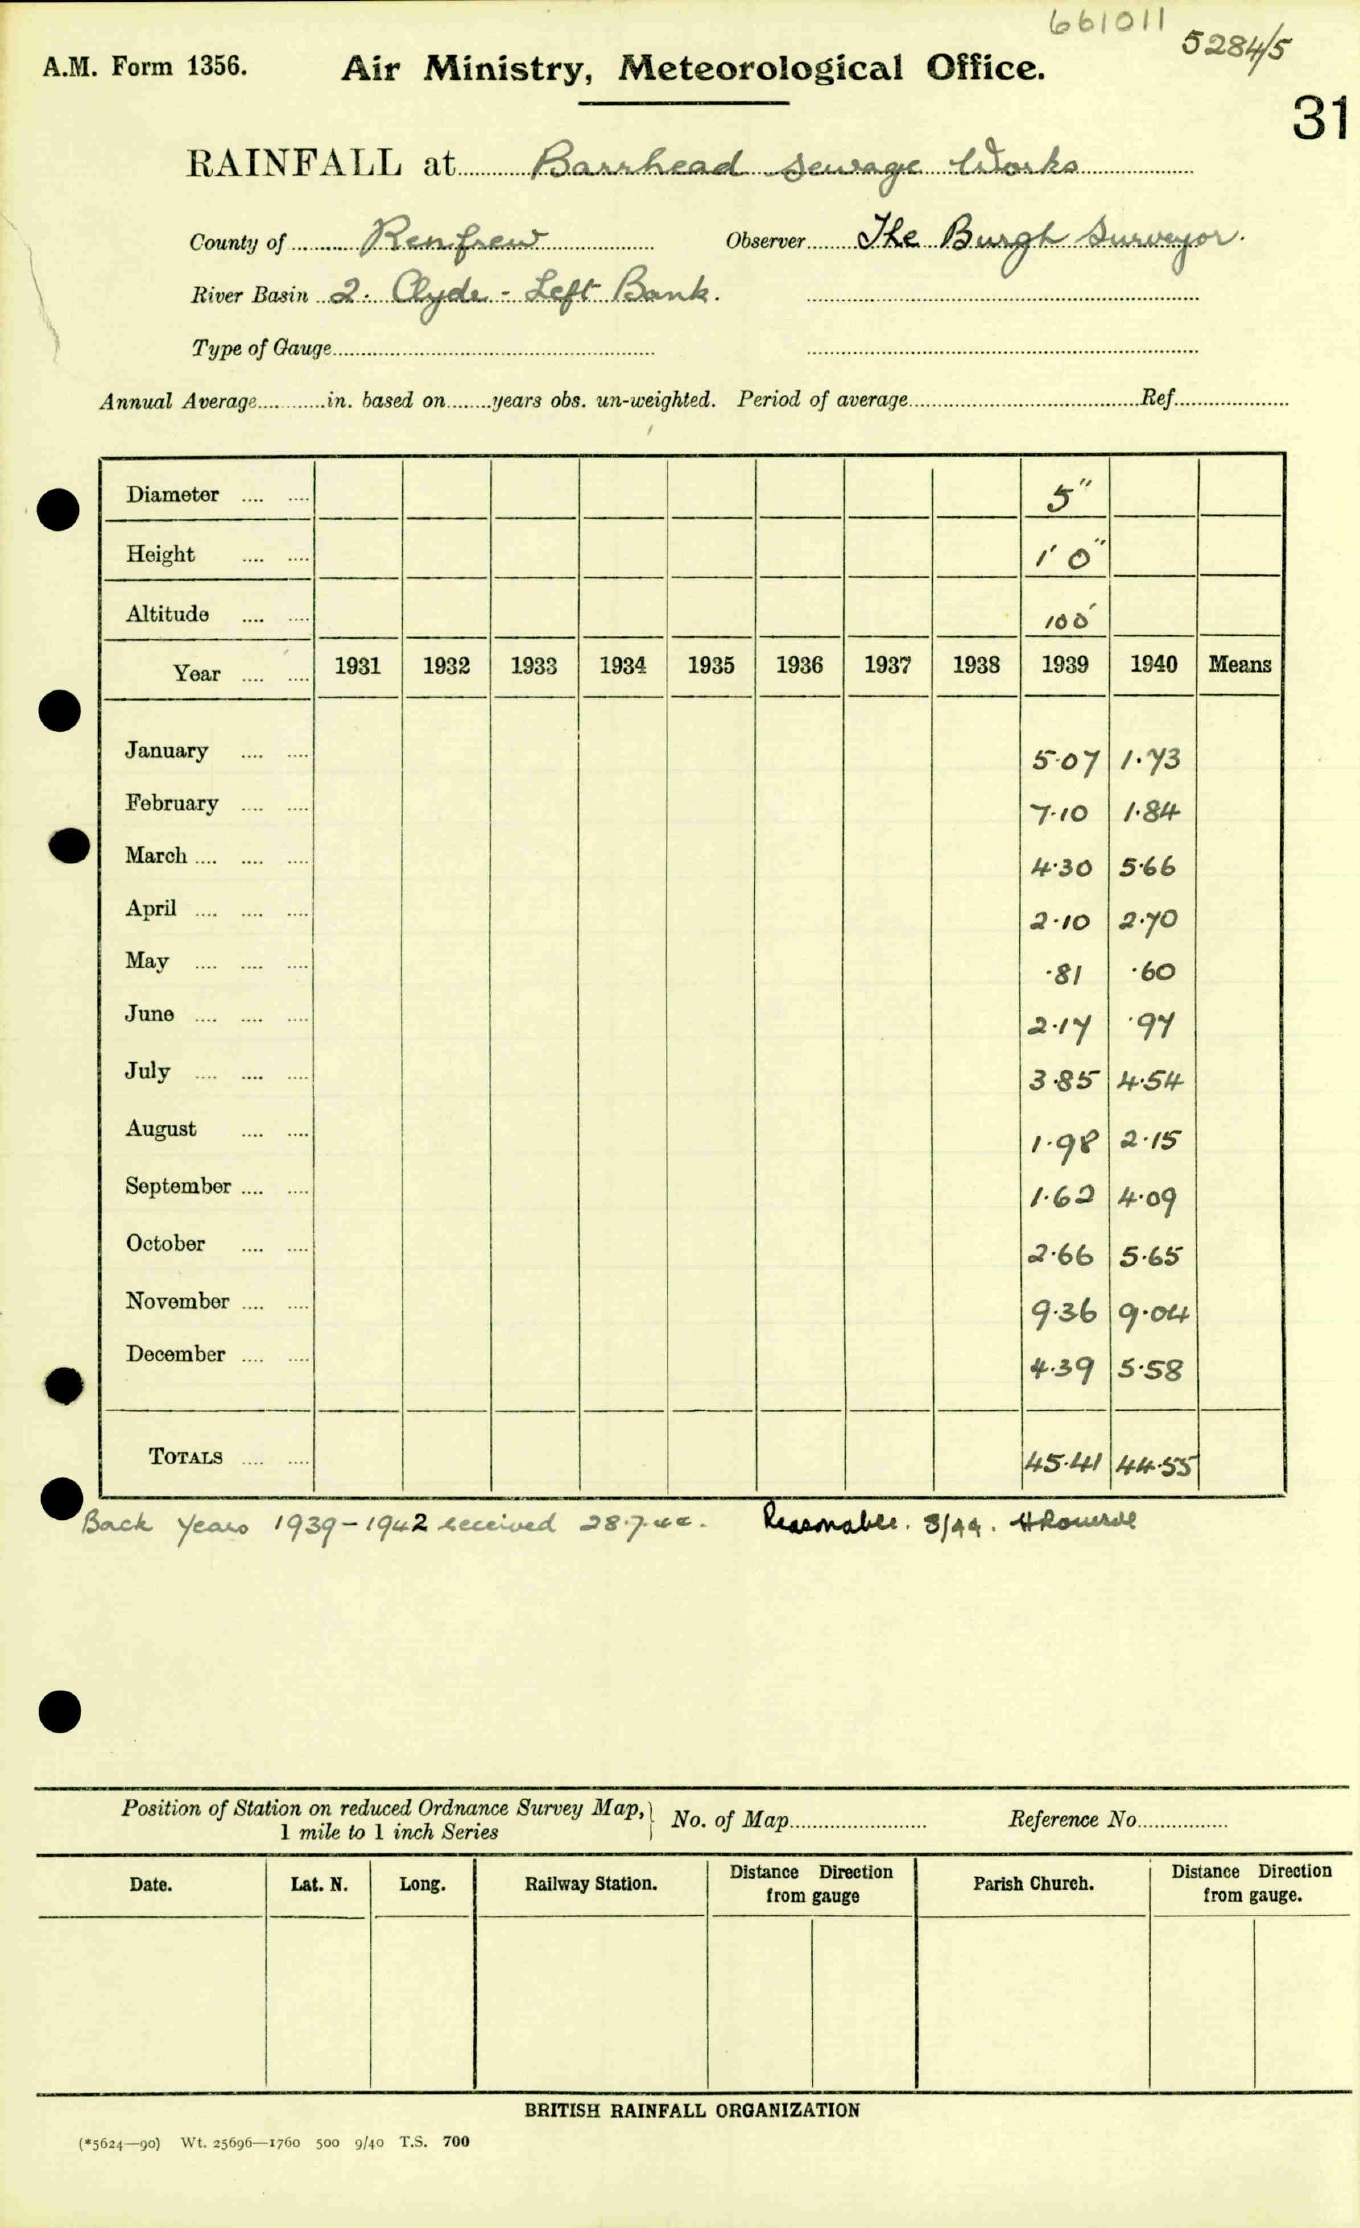 661011
5284/5
A.M. Form 1356.
Air Ministry, Meteorological Office.
31
RAINFALL at Barrhead Sewage Works
County of Renfrew Observer The Burgh Surveyor.
River Basin 2. Clyde - Left Bank.
Type of Gauge
Annual Average in. based on years obs. un-weighted. Period of average Ref
Diameter 5"
Height 1' 0"
Altitude 100'
Year 1931 1932 1933 1934 1935 1936 1937 1938 1939 1940 Means
January 5.07 1.73
February 7.10 1.84
March 4.30 5.66
April 2.10 2.70
May .81 .60
June 2.17 .97
July 3.85 4.54
August 1.98 2.15
September 1.62 4.09
October 2.66 5.65
November 9.36 9.04
December 4.39 5.58
TOTALS 45.41 44.55
Back Years 1939-1942 received 28.7.44. Reasonable. 8/44.
Position of Station on reduced Ordnance Survey Map,
1 mile to 1 inch Series
No. of Map Reference No.
Date. Lat. N. Long. Railway Station. Distance Direction from gauge Parish Church. Distance Direction from gauge.
BRITISH RAINFALL ORGANIZATION
(*5624—90) Wt. 25696—1760 500 9/40 T.S. 700